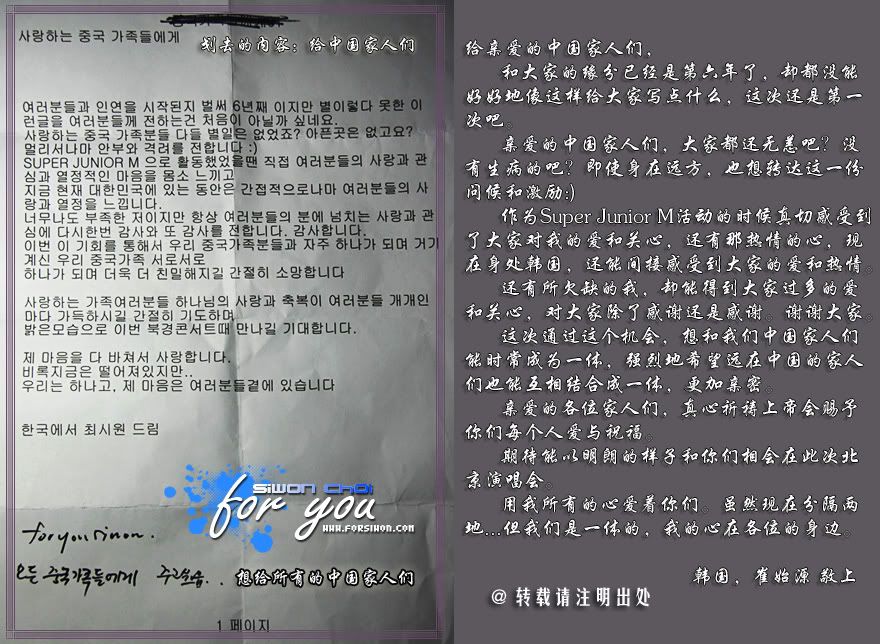 사랑하는 중국 가족들에게
划去的内容：给中国家人们
여러분들과 인연을 시작된지 벌써 6년째 이지만 별이렇다 못한 이
런글을 여러분들께 전하는건 처음이 아닐까 싶네요.
사랑하는 중국 가족분들 다들 별일은 없었죠? 아픈곳은 없고요?
멀리서나마 안부와 격려를 전합니다 :)
SUPER JUNIOR M 으로 활동했었을땐 직접 여러분들의 사랑과 관
심과 열정적인 마음을 몸소 느끼고
지금 현재 대한민국에 있는 동안은 간접적으로나마 여러분들의 사
랑과 열정을 느낍니다.
너무나도 부족한 저이지만 항상 여러분들의 분에 넘치는 사랑과 관
심에 다시한번 감사와 또 감사를 전합니다. 감사합니다.
이번 이 기회를 통해서 우리 중국가족분들과 자주 하나가 되며 거기
계신 우리 중국가족 서로서로
하나가 되며 더욱 더 친밀해지길 간절히 소망합니다
사랑하는 가족여러분들 하나님의 사랑과 축복이 여러분들 개개인
마다 가득하시길 간절히 기도하며
밝은모습으로 이번 북경콘서트때 만나길 기대합니다.
제 마음을 다 바쳐서 사랑합니다.
비록지금은 떨어져있지만..
우리는 하나고, 제 마음은 여러분들곁에 있습니다
한국에서 최시원 드림
SIWON CHOI
for you
WWW.FORSIWON.COM
for you siwon.
모든 중국가족들에게 주고싶음..
想给所有的中国家人们
1 페이지
给亲爱的中国家人们，
和大家的缘分已经是第六年了，却都没能
好好地像这样给大家写点什么，这次还是第一
次吧。
亲爱的中国家人们，大家都还无恙吧？没
有生病的吧？即使身在远方，也想转达这一份
问候和激励:)
作为Super Junior M活动的时候真切感受到
了大家对我的爱和关心，还有那热情的心，现
在身处韩国，还能间接感受到大家的爱和热情。
还有所欠缺的我，却能得到大家过多的爱
和关心，对大家除了感谢还是感谢。谢谢大家。
这次通过这个机会，想和我们中国家人们
能时常成为一体，强烈地希望远在中国的家人
们也能互相结合成一体，更加亲密。
亲爱的各位家人们，真心祈祷上帝会赐予
你们每个人爱与祝福。
期待能以明朗的样子和你们相会在此次北
京演唱会。
用我所有的心爱着你们。虽然现在分隔两
地...但我们是一体的，我的心在各位的身边。
韩国，崔始源 敬上
@ 转载请注明出处